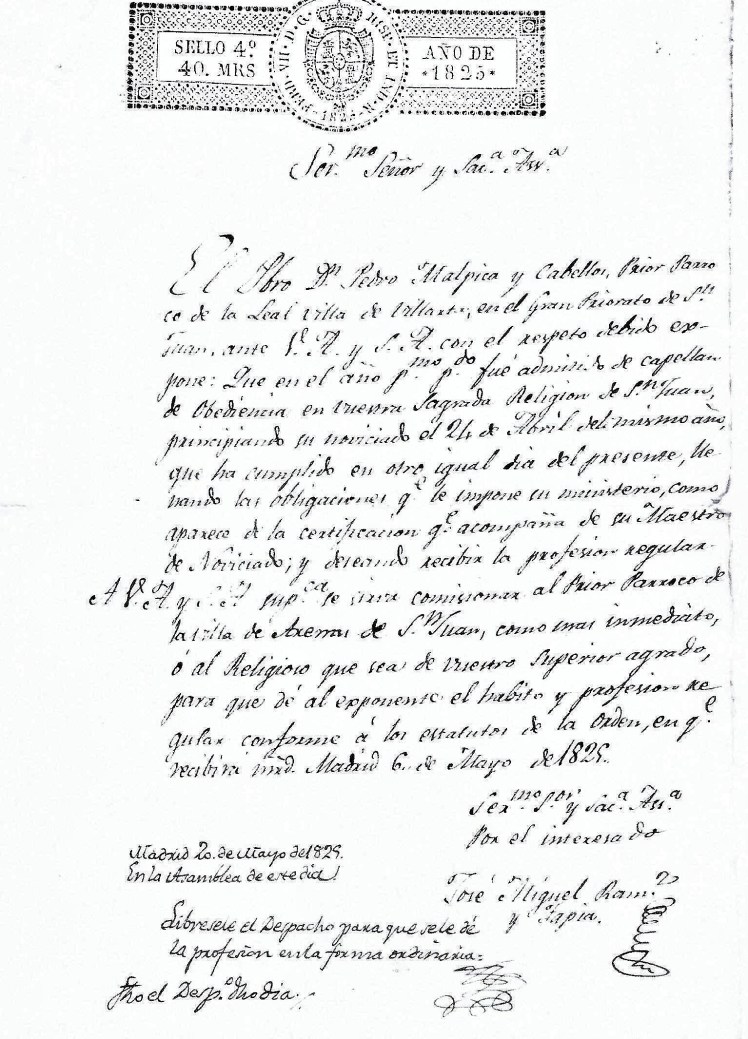 SELLO 4º
40. MRS
AÑO DE
*1825*
FERD. VII. D. G. HISP. ET IND. R. 1825
Ser.mo Señor y Sac.a Ass.a
El Pbro Dn Pedro Malpica y Cabellos, Prior Parro
co de la Leal villa de Villarta, en el Gran Priorato de Sn
Juan, ante V. A. y S. A. con el respeto debido ex-
pone: Que en el año p.mo p.do fué admitido de capellan
de Obediencia en vuestra Sagrada Religion de S.n Juan,
principiando su noviciado el 24 de Abril del mismo año,
que ha cumplido en otro igual dia del presente, lle
nando las obligaciones q.e le impone su ministerio, como
aparece de la certificacion q.e acompaña de su Maestro
de Noviciado; y deseando recibir la profesion regular-
A V. A. y S. A sup.ca se sirva comisionar al Prior Parroco de
la villa de Arenas de S.n Juan, como mas inmediato,
ó al Religioso que sea de vuestro superior agrado,
para que dé al exponente el habito y profesion re
gular conforme á los estatutos de la Orden, en q.e
recibirá mrd. Madrid 6 de Mayo de 1825.
Ser.mo S.or y Sac.a Ass.a
Por el interesado
José Miguel Ram.z
y Tapia.
Madrid 20. de Mayo de 1825.
En la Asamblea de este dia
Libresele el Despacho para que sele dé
la profesion en la forma ordinaria:
fho el Desp.o dho dia.